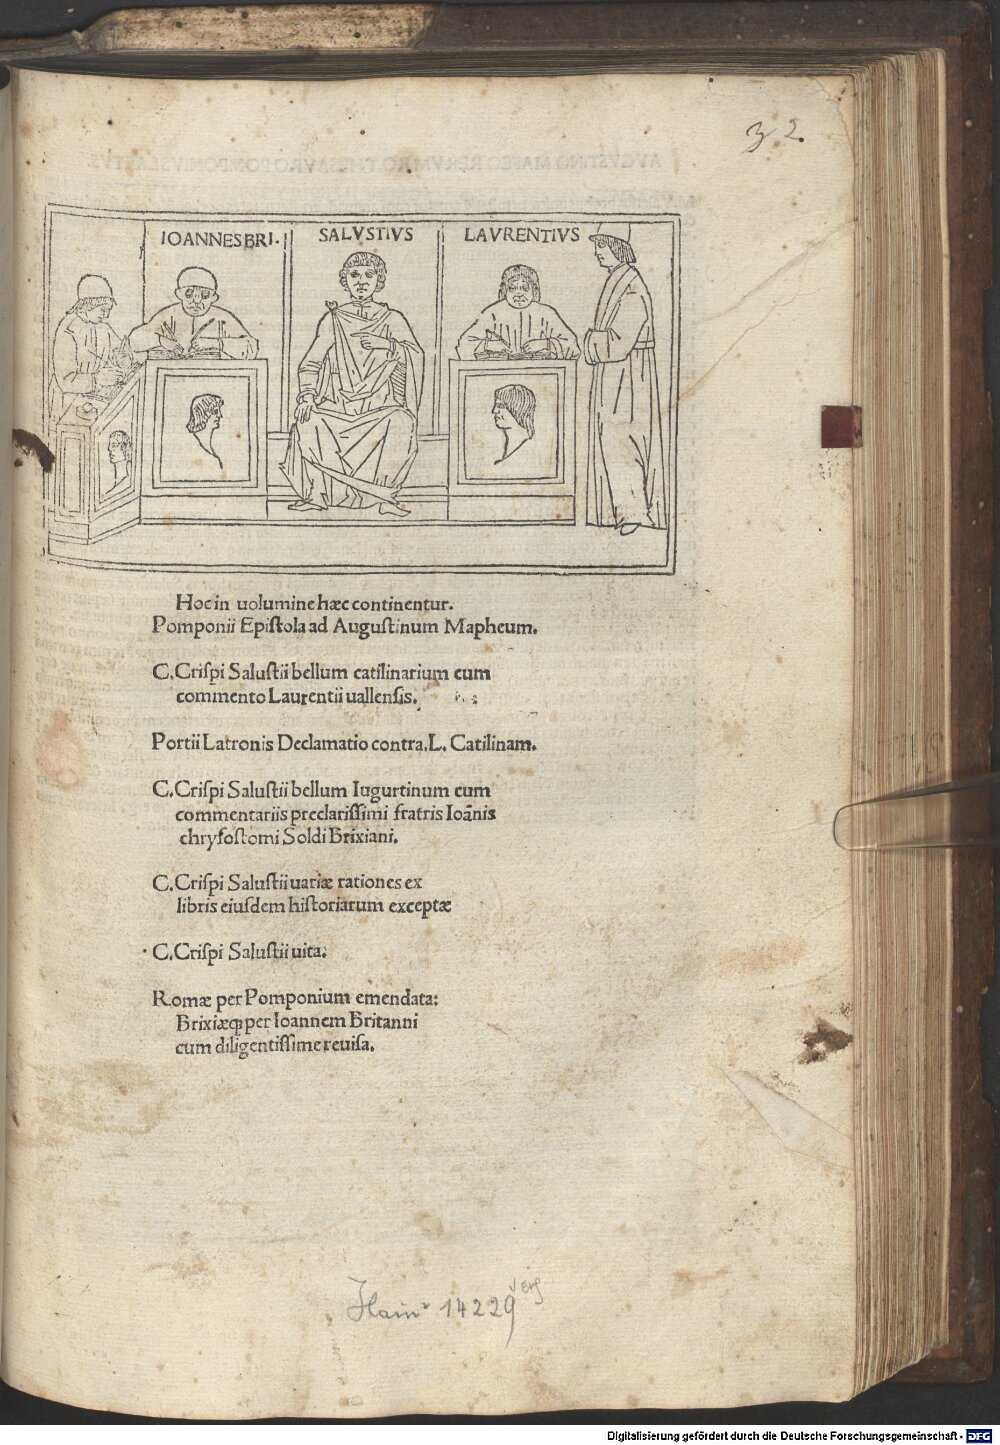 32.
IOANNES BRI.
SALVSTIVS
LAVRENTIVS
Hoc in uolumine hæc continentur.
Pomponii Epistola ad Augustinum Mapheum.
C. Crispi Salustii bellum catilinarium cum
commento Laurentii uallensis.
Portii Latronis Declamatio contra .L. Catilinam.
C. Crispi Salustii bellum Iugurtinum cum
commentariis preclarissimi fratris Ioãnis
chrysostomi Soldi Brixiani.
C. Crispi Salustii uariæ rationes ex
libris eiusdem historiarum exceptæ
C. Crispi Salustii uita.
Romæ per Pomponium emendata:
Brixiæꝙ per Ioannem Britanni
cum diligentissime reuisa.
Hain 14229
Digitalisierung gefördert durch die Deutsche Forschungsgemeinschaft - DFG